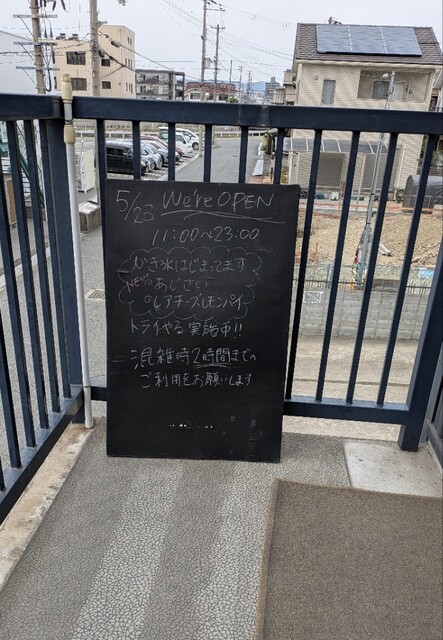 5/23 We're OPEN
11:00~23:00
かき氷はじまってます
NEW あじさい
のレアチーズレモンパイ
トライやる実施中!!
混雑時2時間までの
ご利用をお願いします